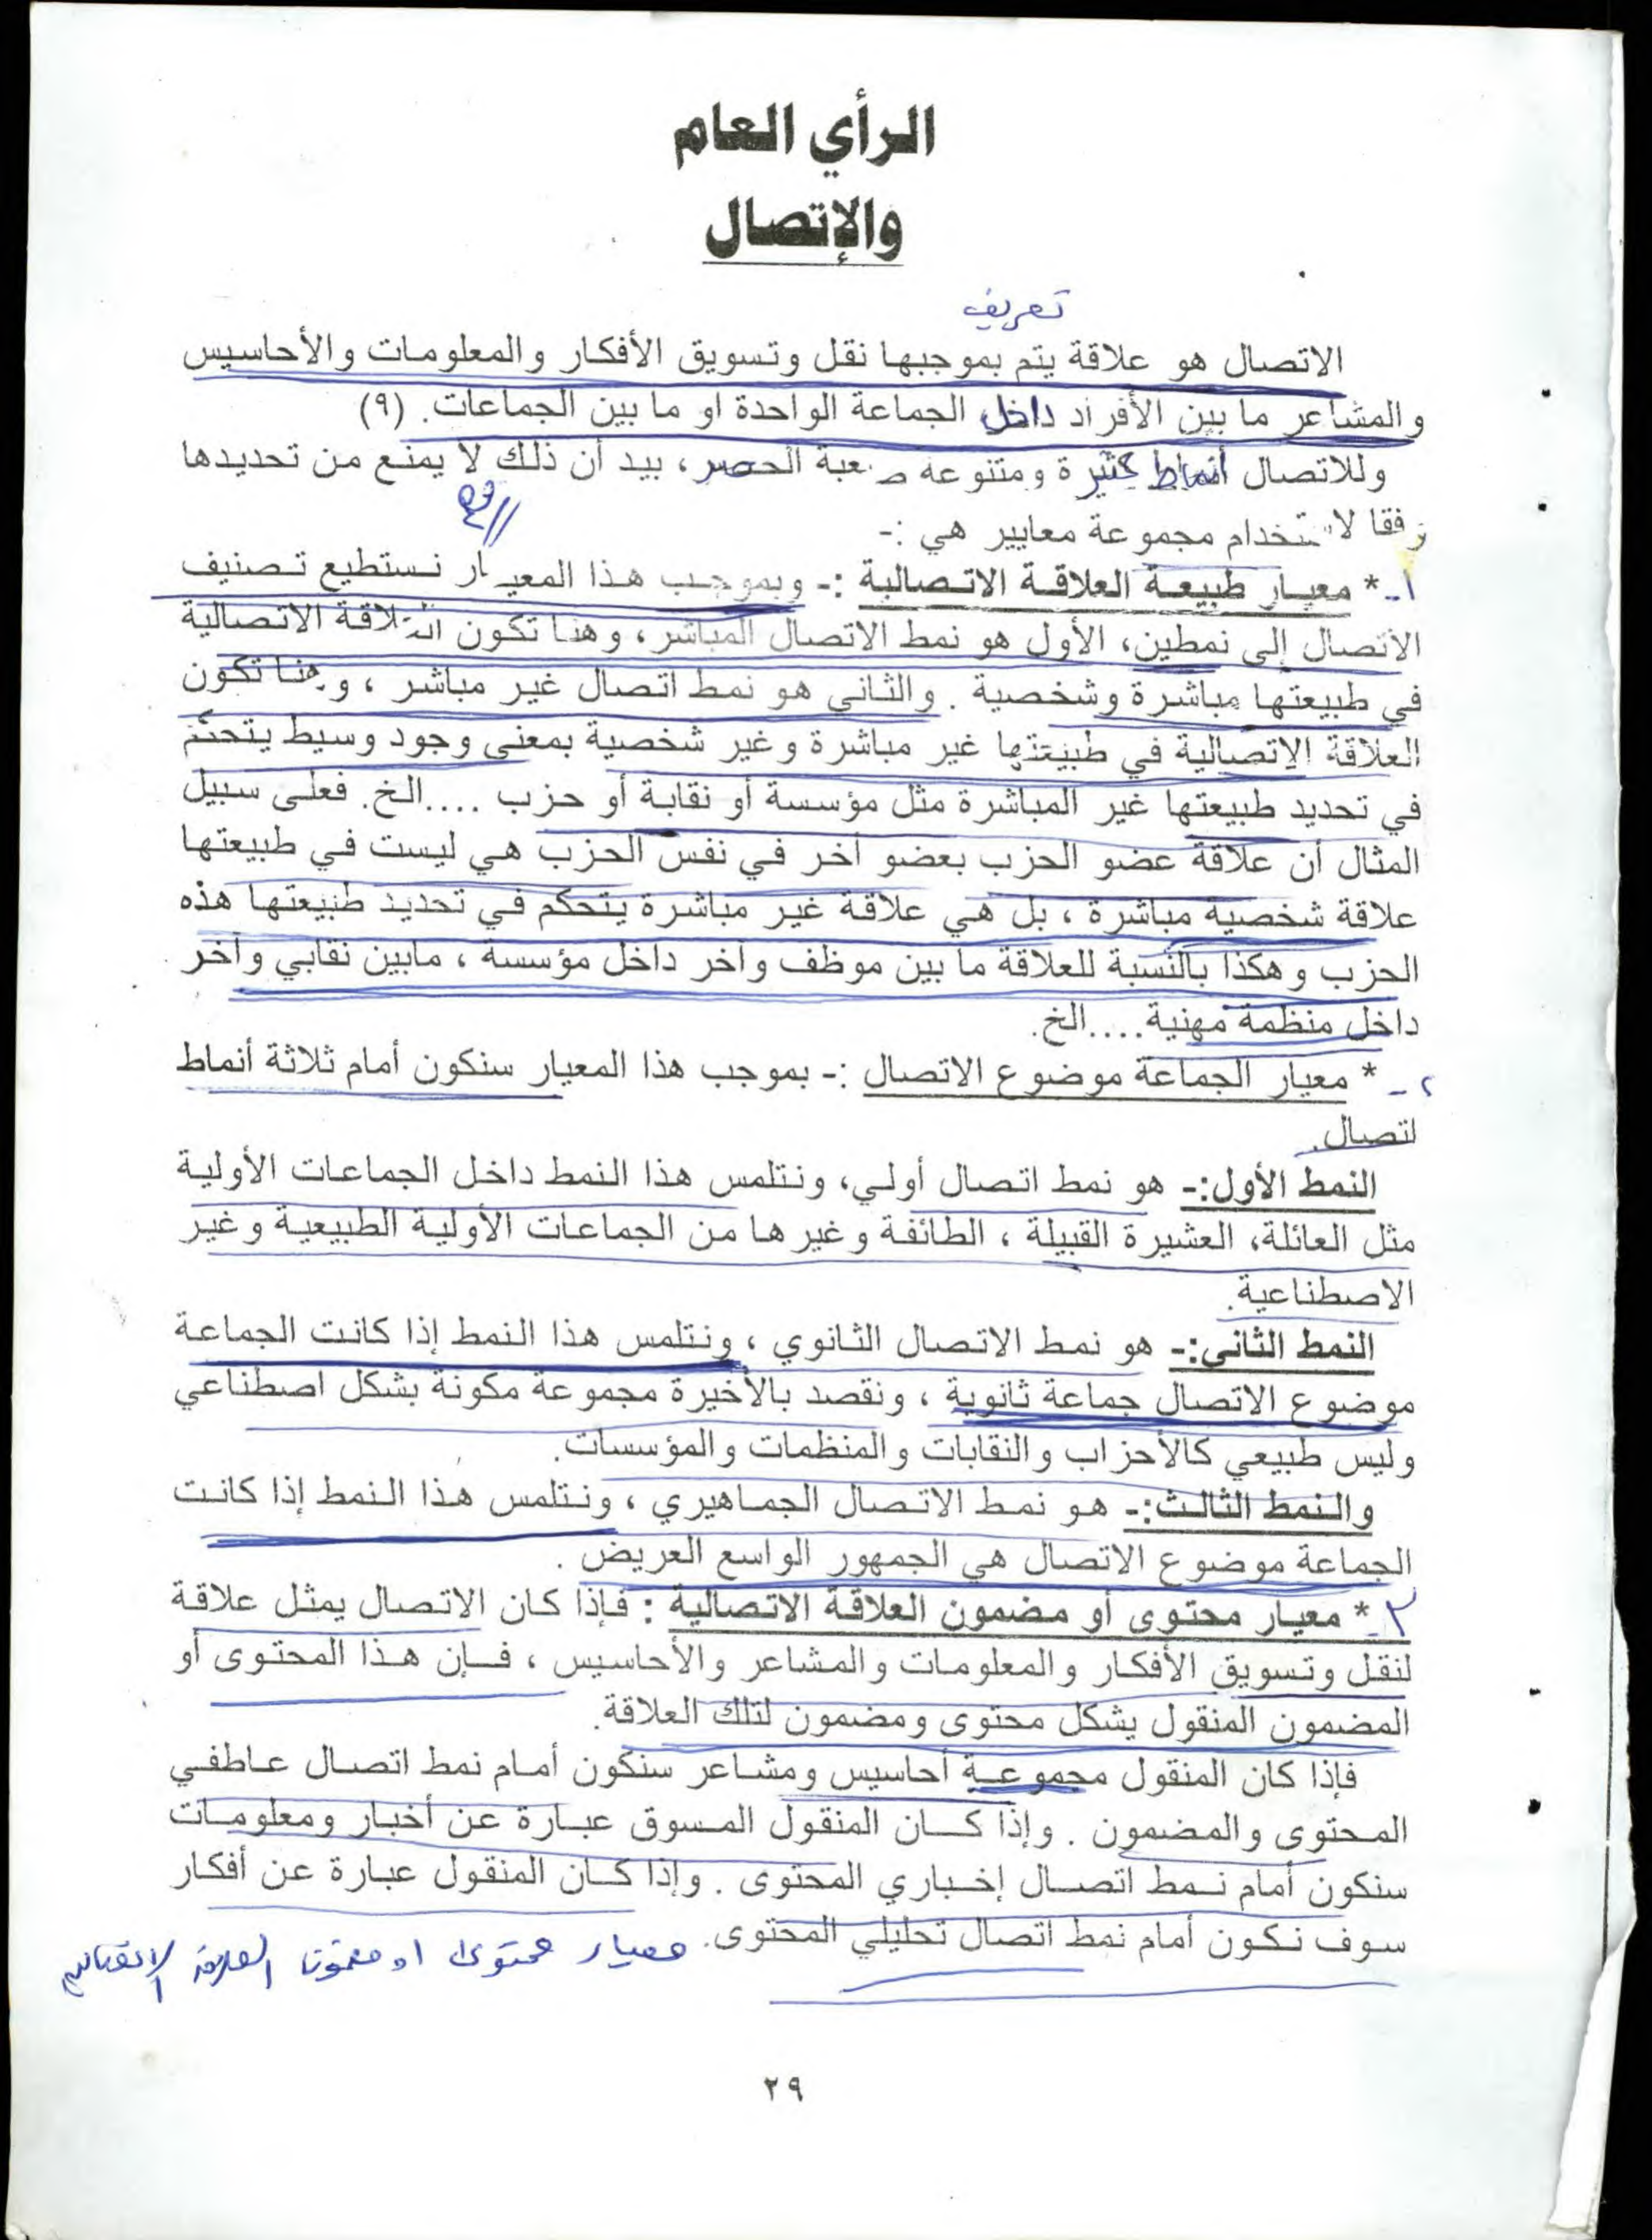 الرأي العام
والإتصال
تعريف
الاتصال هو علاقة يتم بموجبها نقل وتسويق الأفكار والمعلومات والأحاسيس
والمشاعر ما بين الأفراد داخل الجماعة الواحدة او ما بين الجماعات. (٩)
وللاتصال أنماط كثيرة ومتنوعه صعبة الحصر، بيد أن ذلك لا يمنع من تحديدها
وفقا لاستخدام مجموعة معايير هي :-
١- * معيار طبيعة العلاقة الاتصالية :- وبموجب هذا المعيار نستطيع تصنيف
الاتصال إلى نمطين، الأول هو نمط الاتصال المباشر، وهنا تكون العلاقة الاتصالية
في طبيعتها مباشرة وشخصية . والثاني هو نمط اتصال غير مباشر ، وهنا تكون
العلاقة الاتصالية في طبيعتها غير مباشرة وغير شخصية بمعنى وجود وسيط يتحكم
في تحديد طبيعتها غير المباشرة مثل مؤسسة أو نقابة أو حزب ....الخ. فعلى سبيل
المثال أن علاقة عضو الحزب بعضو آخر في نفس الحزب هي ليست في طبيعتها
علاقة شخصية مباشرة ، بل هي علاقة غير مباشرة يتحكم في تحديد طبيعتها هذه
الحزب وهكذا بالنسبة للعلاقة ما بين موظف وآخر داخل مؤسسة ، مابين نقابي وآخر
داخل منظمة مهنية....الخ.
٢- * معيار الجماعة موضوع الاتصال :- بموجب هذا المعيار سنكون أمام ثلاثة أنماط
اتصال.
النمط الأول:- هو نمط اتصال أولي، ونتلمس هذا النمط داخل الجماعات الأولية
مثل العائلة، العشيرة القبيلة ، الطائفة وغيرها من الجماعات الأولية الطبيعية وغير
الاصطناعية.
النمط الثاني:- هو نمط الاتصال الثانوي ، ونتلمس هذا النمط إذا كانت الجماعة
موضوع الاتصال جماعة ثانوية ، ونقصد بالأخيرة مجموعة مكونة بشكل اصطناعي
وليس طبيعي كالأحزاب والنقابات والمنظمات والمؤسسات.
والنمط الثالث:- هو نمط الاتصال الجماهيري ، ونتلمس هذا النمط إذا كانت
الجماعة موضوع الاتصال هي الجمهور الواسع العريض .
٣- * معيار محتوى أو مضمون العلاقة الاتصالية : فإذا كان الاتصال يمثل علاقة
لنقل وتسويق الأفكار والمعلومات والمشاعر والأحاسيس ، فإن هذا المحتوى أو
المضمون المنقول يشكل محتوى ومضمون لتلك العلاقة.
فإذا كان المنقول مجموعة أحاسيس ومشاعر سنكون أمام نمط اتصال عاطفي
المحتوى والمضمون . وإذا كان المنقول المسوق عبارة عن أخبار ومعلومات
سنكون أمام نمط اتصال إخباري المحتوى . وإذا كان المنقول عبارة عن أفكار
سوف نكون أمام نمط اتصال تحليلي المحتوى. معيار محتوى او مضمون العلاقة الاتصاليه
٢٩